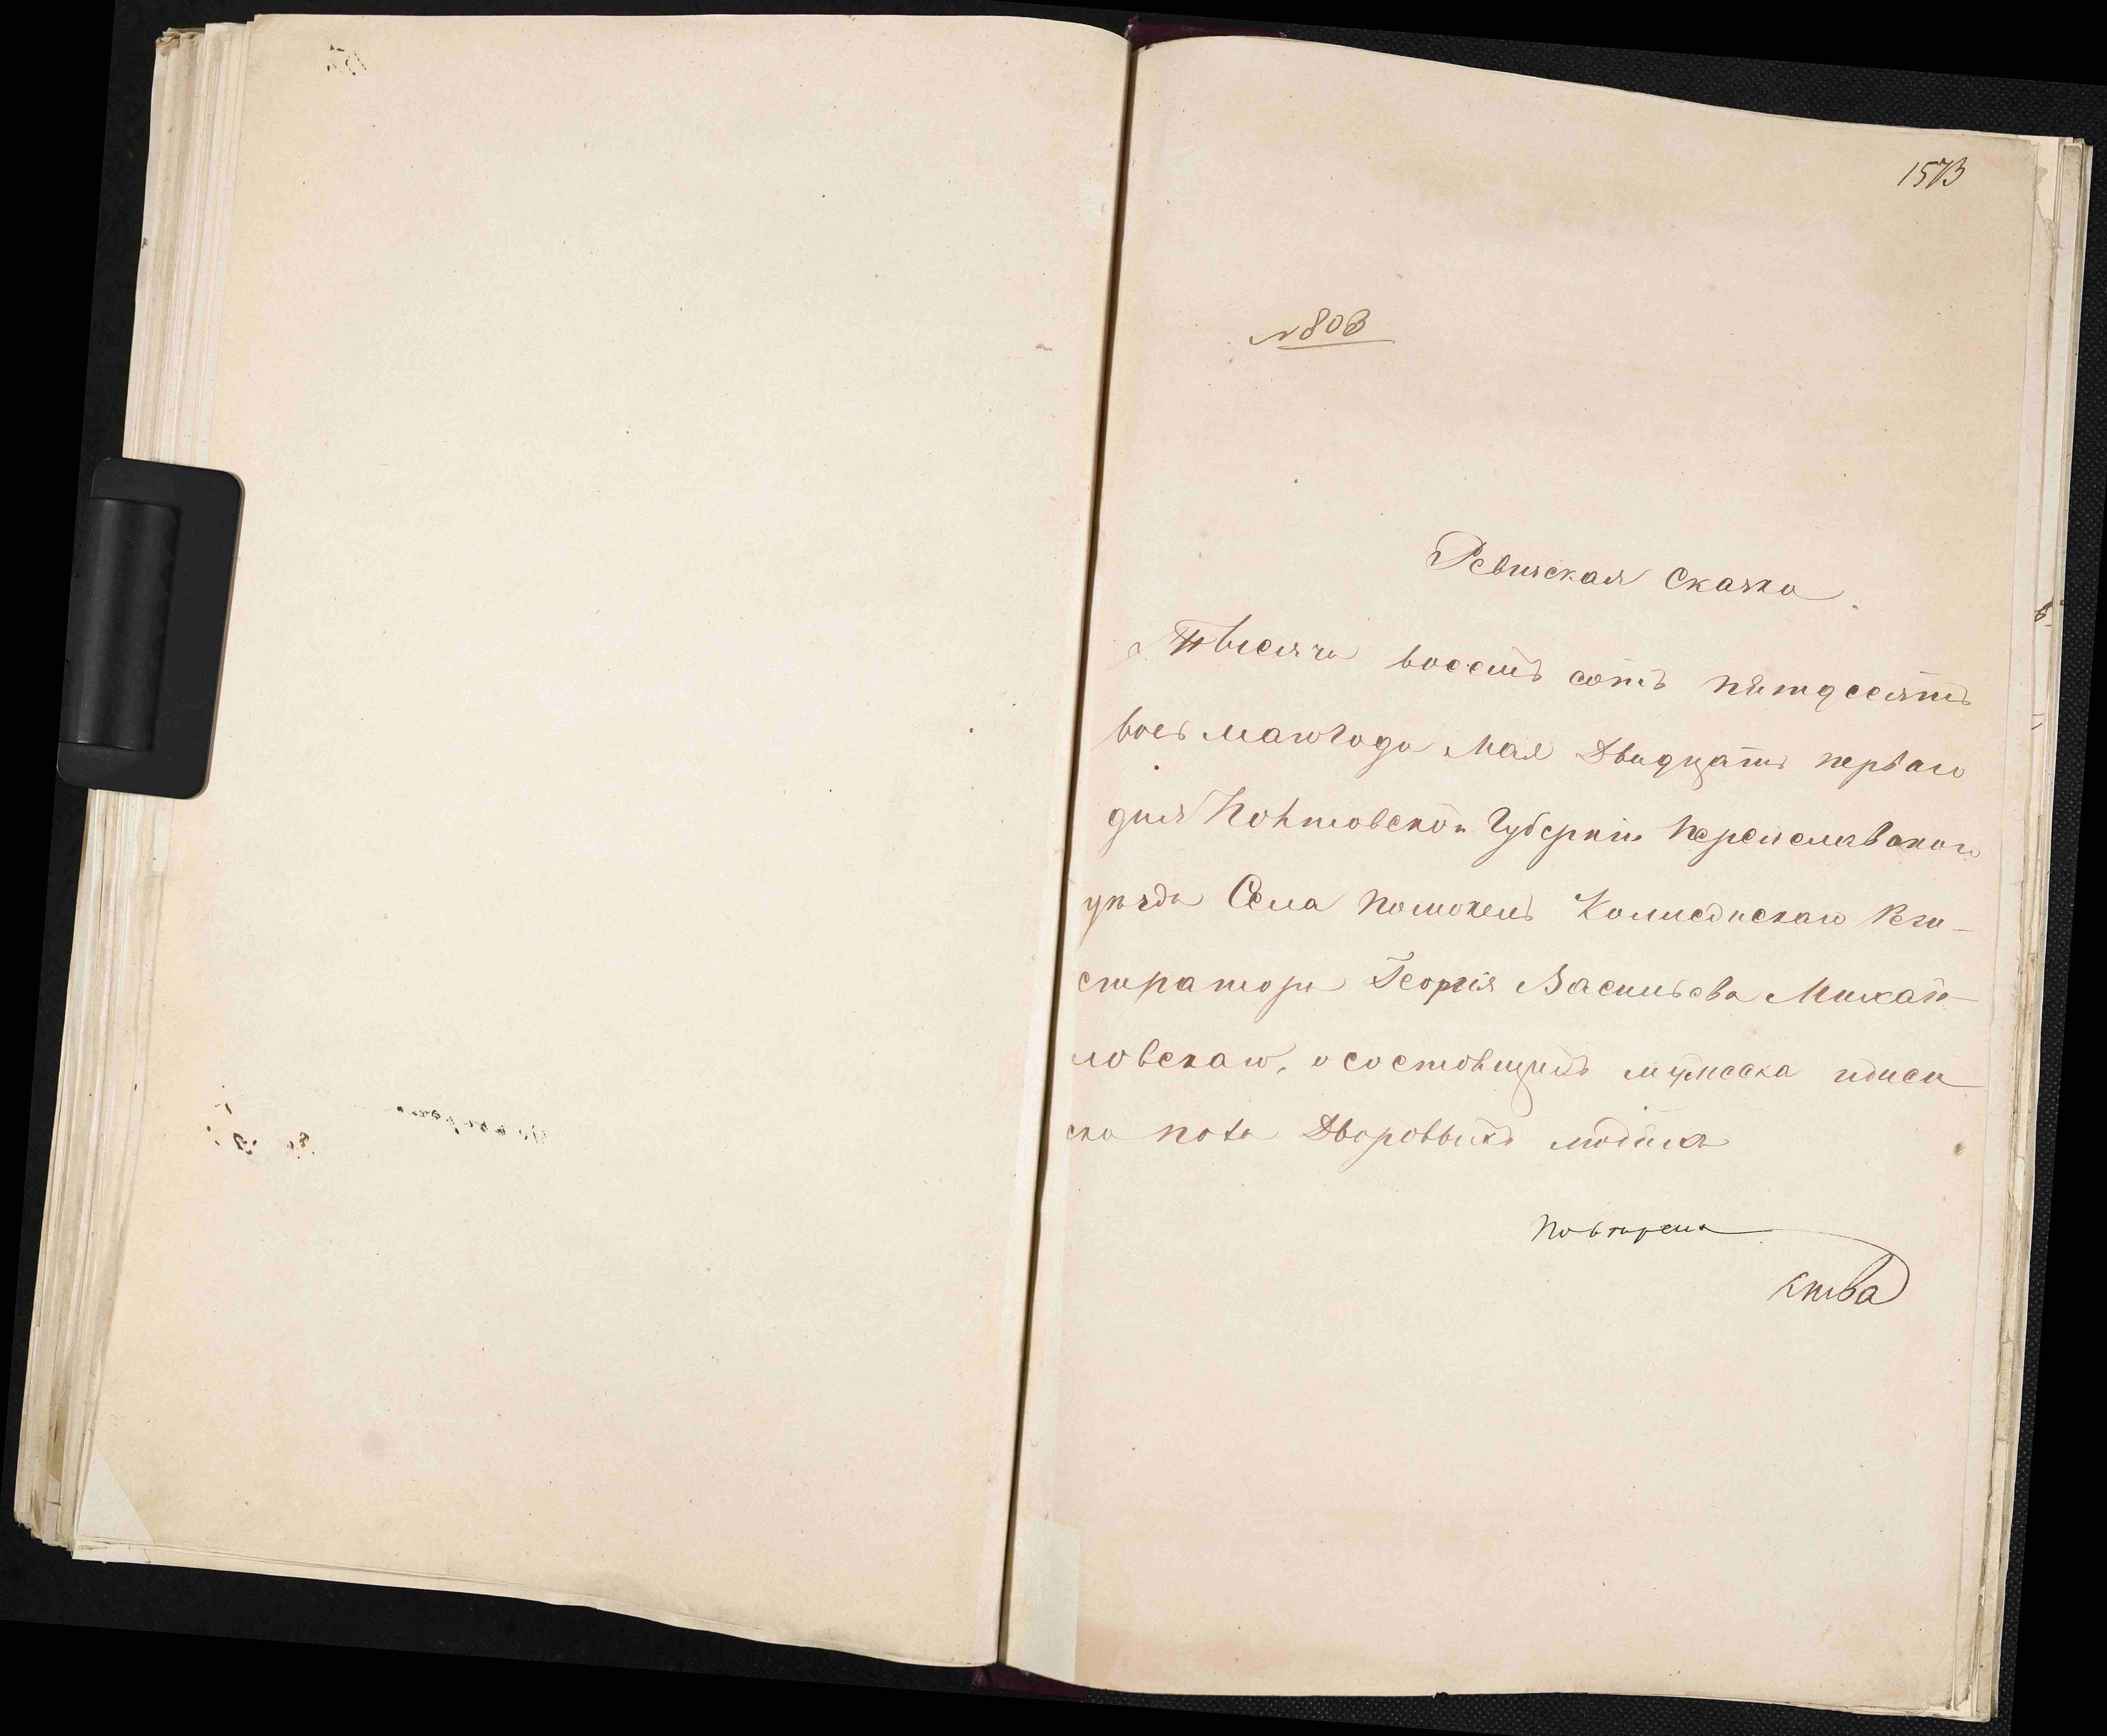 1573
№ 803
Ревиская Скаска
Тысяча восемь сотъ пятдесятъ
восьмаго года Мая Двадцать перваго
дня Полтовской Губерніи Переяславского
уезда Села Помокель Колледискаго Реги-
стратора Георгія Васильева Михай-
ловскаго, о состовщихъ мужеска иженъ
ска пола Дворовыхъ людяхъ
Повторена